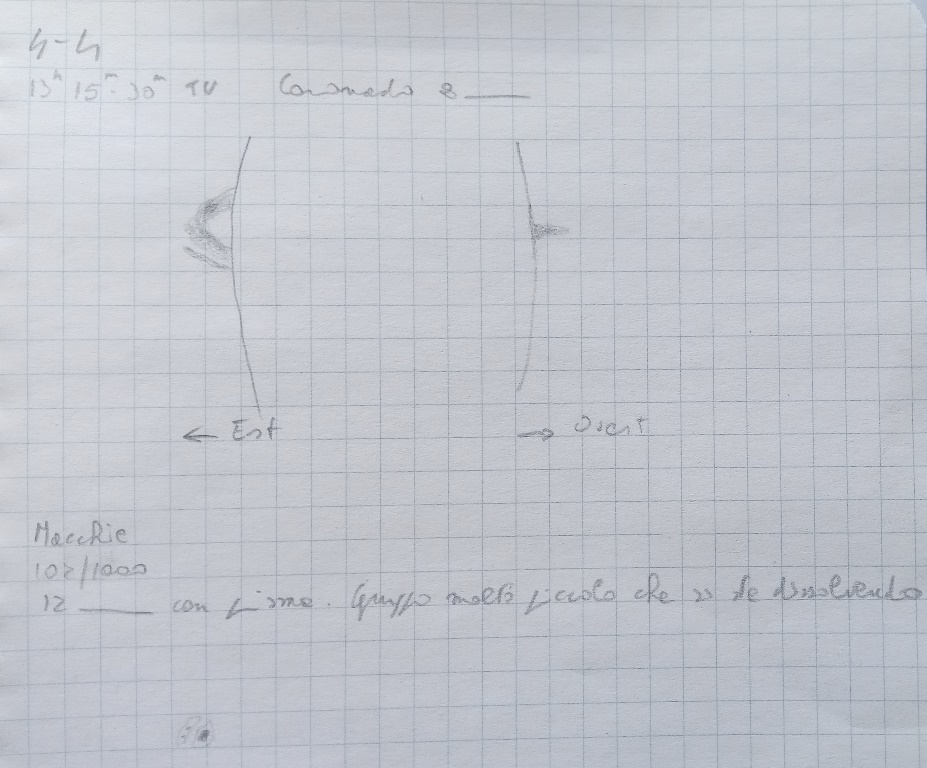 4-4
13h 15m-30m TU Coronado 8 ____
← Est
→ Ovest
Macchie
102/1000
12 ____ con prisma. Gruppo molto piccolo che si sta dissolvendo